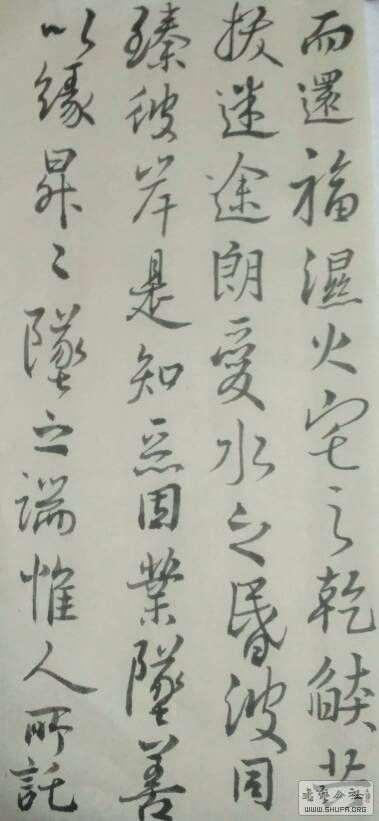 而還福濕火宅之乾燄共
拔迷途朗愛水之昏波同
臻彼岸是知惡因業墜善
以緣昇〻墜之端惟人所託
WWW.SHUFA.ORG